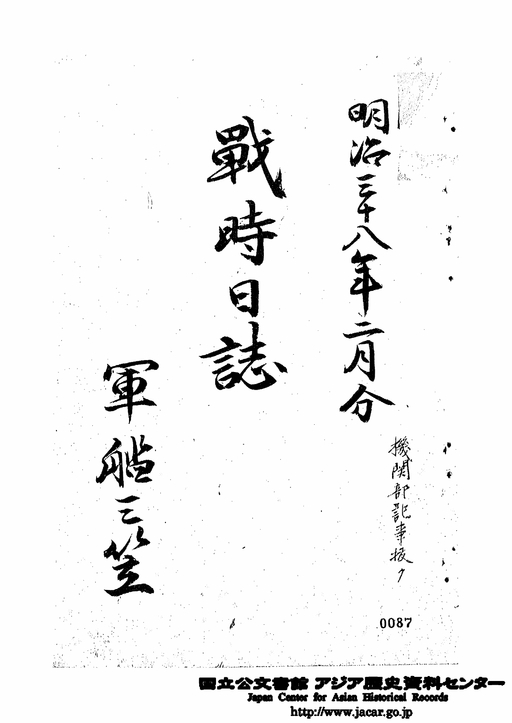 明治三十八年二月分
機関部記事抜ク
戰時日誌
軍艦三笠
0087
国立公文書館 アジア歴史資料センター
Japan Center for Asian Historical Records
http://www.jacar.go.jp